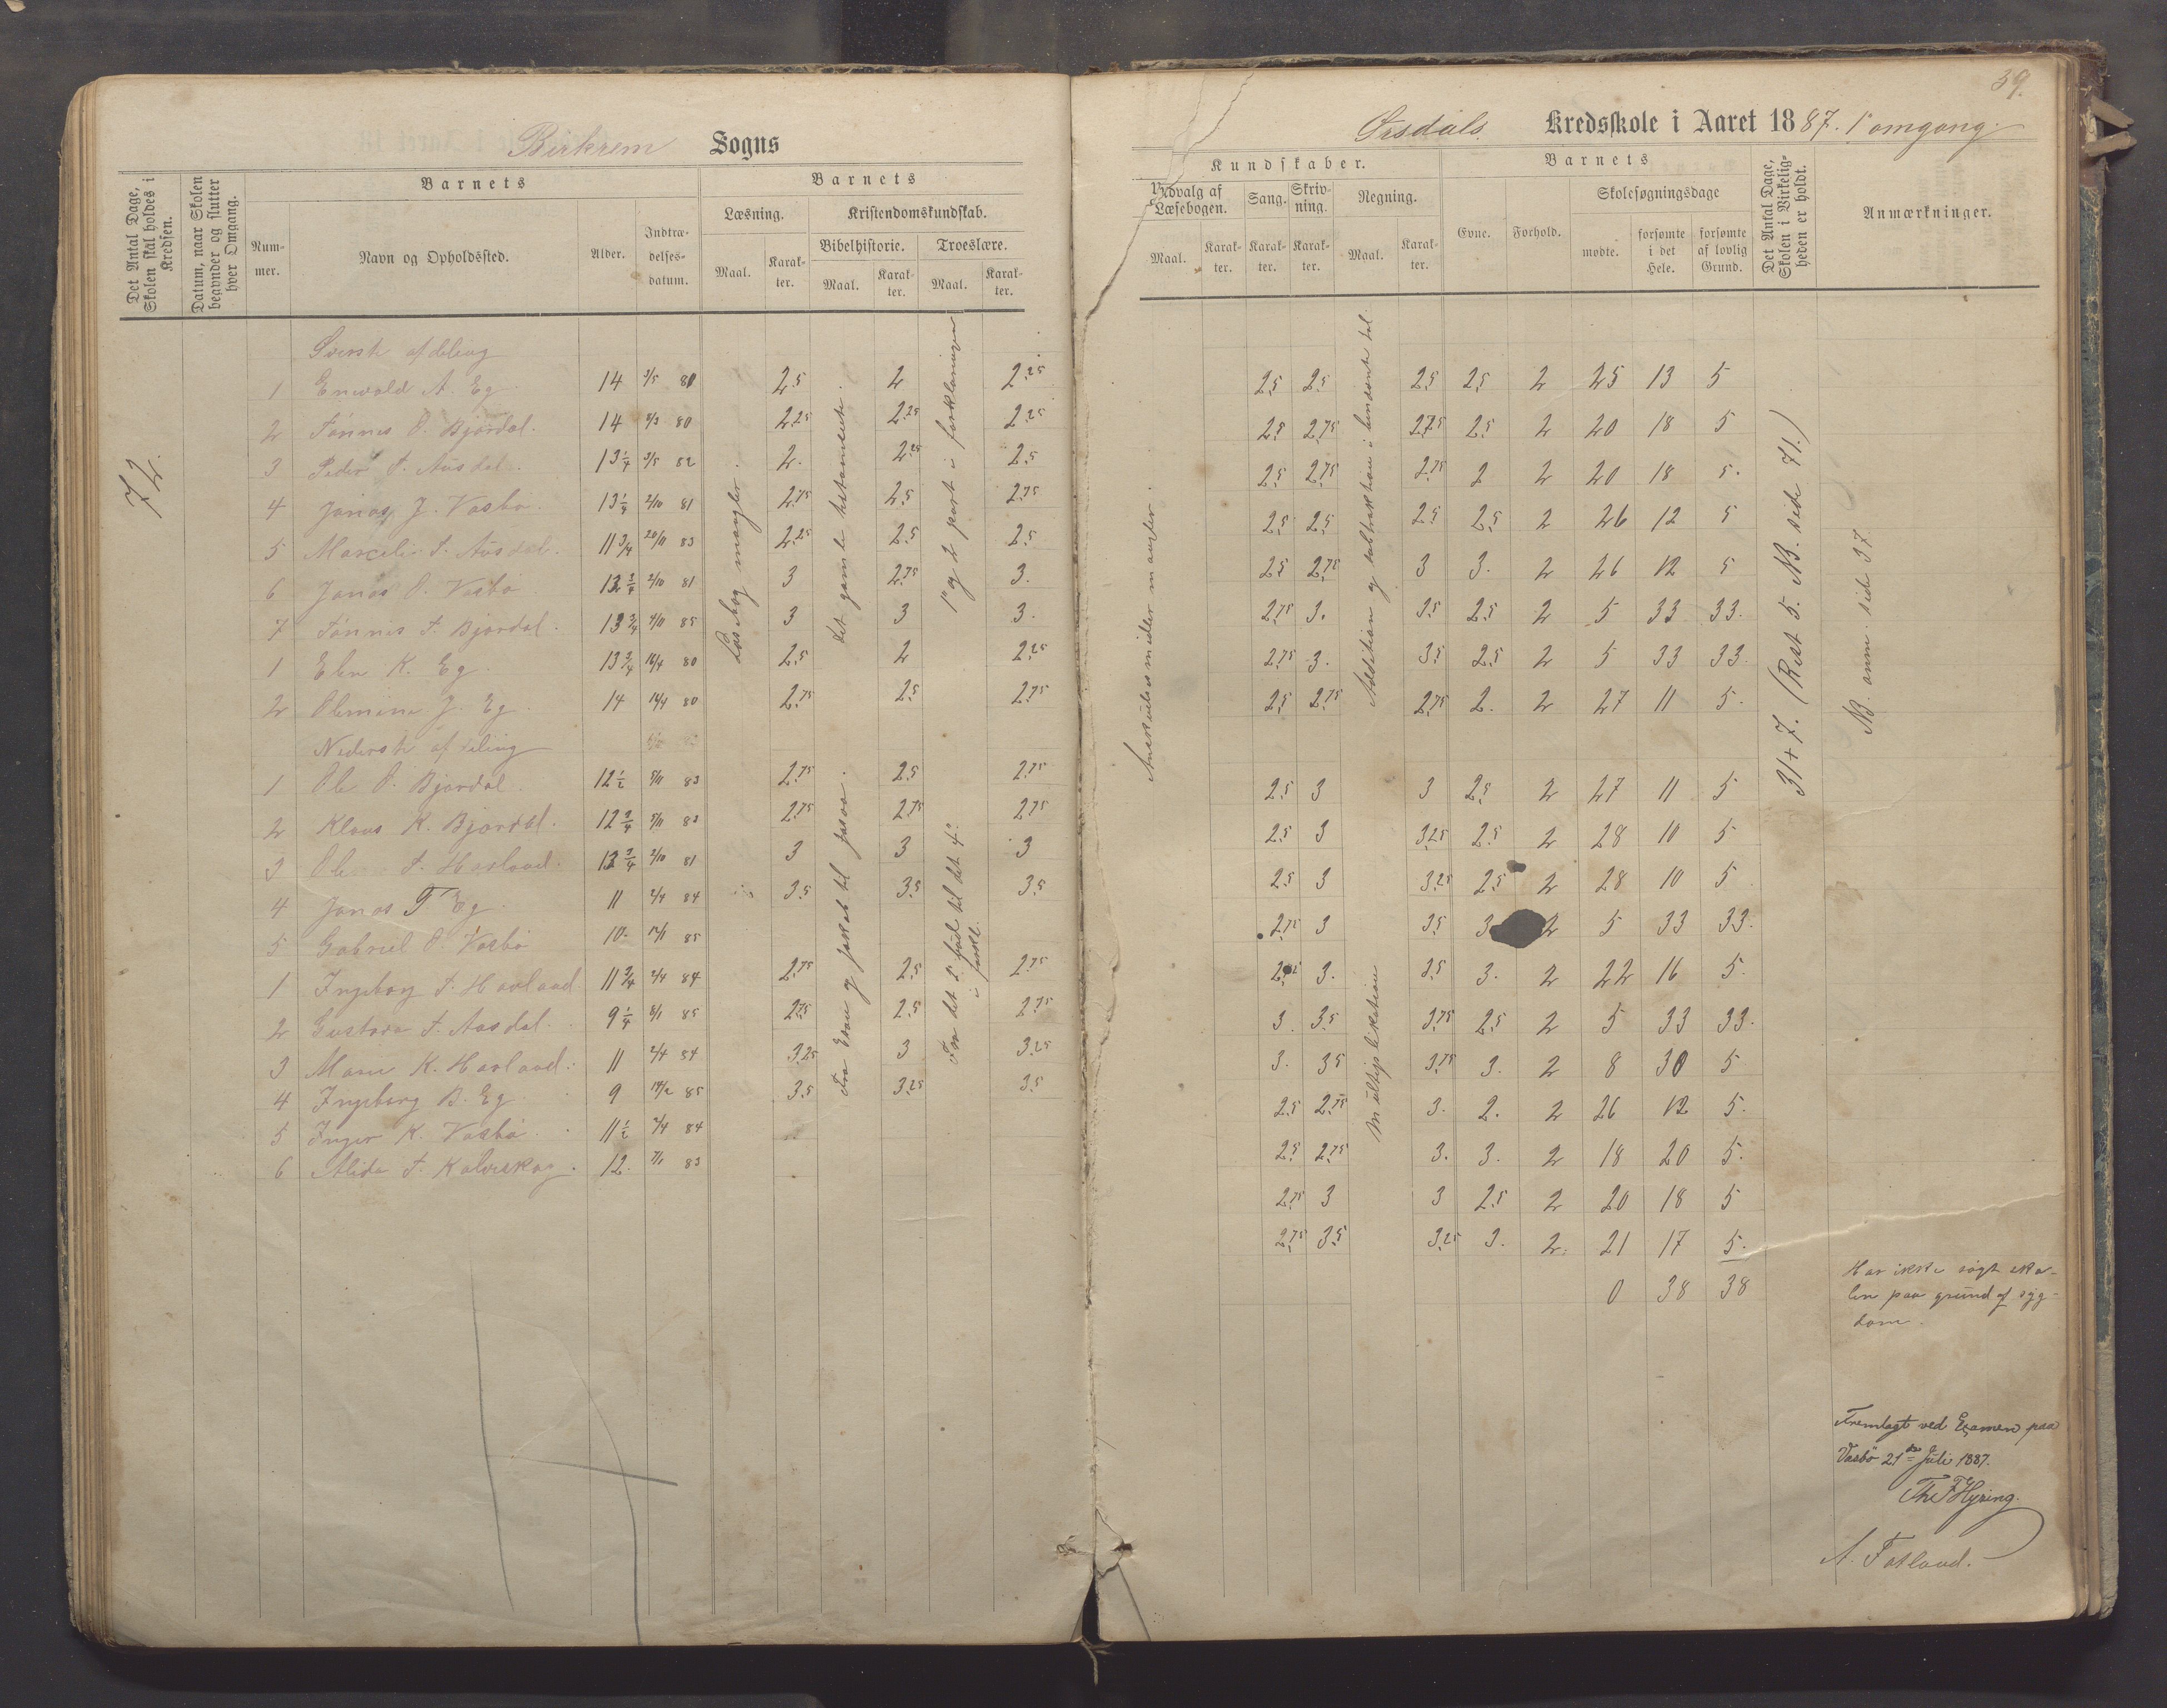 39.
Birkrem Sogns
Ørsdals Kredsskole i Aaret 1887. 1ste omgang.
Det Antal Dage, Skolen skal holdes i Kredsen.
Datum, naar Skolen begynder og slutter hver Omgang.
Barnets
Nummer.
Navn og Opholdssted.
Alder.
Indtrædelsesdatum.
Barnets
Læsning.
Maal.
Karakter.
Kristendomskundskab.
Bibelhistorie.
Maal.
Karakter.
Troeslære.
Maal.
Karakter.
Kundskaber.
Udvalg af Læsebogen.
Maal.
Karakter.
Sang.
Karakter.
Skrivning.
Karakter.
Regning.
Maal.
Karakter.
Barnets
Evne.
Forhold.
Skolesøgningsdage
mødte.
forsømte i det Hele.
forsømte af lovlig Grund.
Det Antal Dage, Skolen i Virkeligheden er holdt.
Anmærkninger.
72.
Øverste afdeling
1 Enevald A. Eg 14 3/5 80 2.5 2 2.25
2 Tønnes O. Bjordal. 14 8/3 80 2.25 2.25 2.25
3 Peder T. Ausdal. 13 1/4 3/5 82 2. 2.25 2.5
4 Jonas J. Vasbø. 13 1/4 2/10 81 2.75 2.5 2.75
5 Marcelius T. Ausdal. 11 3/4 20/11 83 2.25 2.5 2.5
6 Jonas O. Vasbø 13 3/4 2/10 81 3 2.75 3.
7 Tønnes T. Bjordal. 13 3/4 4/11 85 3 3 3.
1 Elen K. Eg. 13 3/4 16/4 80 2.5 2 2.25
2 Olemine J. Eg. 14 14/4 80 2.75 2.5 2.75
Nederste afdeling
1 Ole O. Bjordal. 12 1/2 5/11 83 2.75 2.5 2.75
2 Klaus K. Bjordal. 12 3/4 5/11 83 2.75 2.75 2.75
3 Ole T. Havland. 13 3/4 2/10 81 3 3 3
4 Jonas T. Eg. 11 2/4 84 3.5 3.5 3.5
5 Gabriel O. Vasbø 10 12/1 85
1 Ingeborg T. Havland 11 3/4 2/4 84 2.75 2.5 2.75
2 Gustava T. Ausdal. 9 1/4 8/1 85 2.75 2.5 2.75
3 Maren K. Havland. 11 2/4 84 3.25 3 3.25
4 Ingeborg B. Eg. 9 17/2 85 3.5 3.25 3.5
5 Inger K. Vasbø. 11 1/2 2/4 84
6 Alida T. Kalveskag. 12. 7/1 83
Læsebog mangler.
Det gamle testamente.
1ste og 2 part i forklaringen
Fra Esau og Jakob til
Fra det 2 til det 4de i forkl.
Anskuelsesmidler mangler.
Addition og subtraktion i benævnte tal.
Multiplikation
2.5 2.5 2.5 2.5 2 25 13 5
2.5 2.75 2.75 2.5 2 20 18 5
2.5 2.75 2.75 2 2 20 18 5.
2.5 2.5 2.5 2.5 2 26 12 5
2.5 2.75 3 3. 2 26 12 5
2.75 3. 3.5 2.5 2 5 33 33.
2.75 3. 3.5 2.5 2 5 33 33.
2.5 2.75 2.75 2. 2 27 11 5.
2.5 3 3 2.5 2 27 11 5
2.5 3 3.25 2.5 2 28 10 5
2.5 3 3.25 2.5 2 28 10 5
2.75 3 3.5 3 2 5 33 33.
3. 3.5 3. 2 22 16 5.
3. 3.5 3.75 2.5 2 5 33 33.
3. 3.5 3.75 3. 2 8 30 5
2.5 2.75 3. 2. 2 26 12 5.
2.5 2.75 3. 3. 2 18 20 5.
2.75 3 3 2.5 2 20 18 5
2.75 3.5 3.25 3. 2. 21 17 5.
0 38 38
31 + 7. (Rest 5. NB. side 71.)
NB. anm. side 37
Har ikke søgt sko-
len paa grund af syg-
dom.
Fremlagt ved Examen paa
Vasbö 21de Juli 1887.
Th. F Hysing.
A. Fotland.